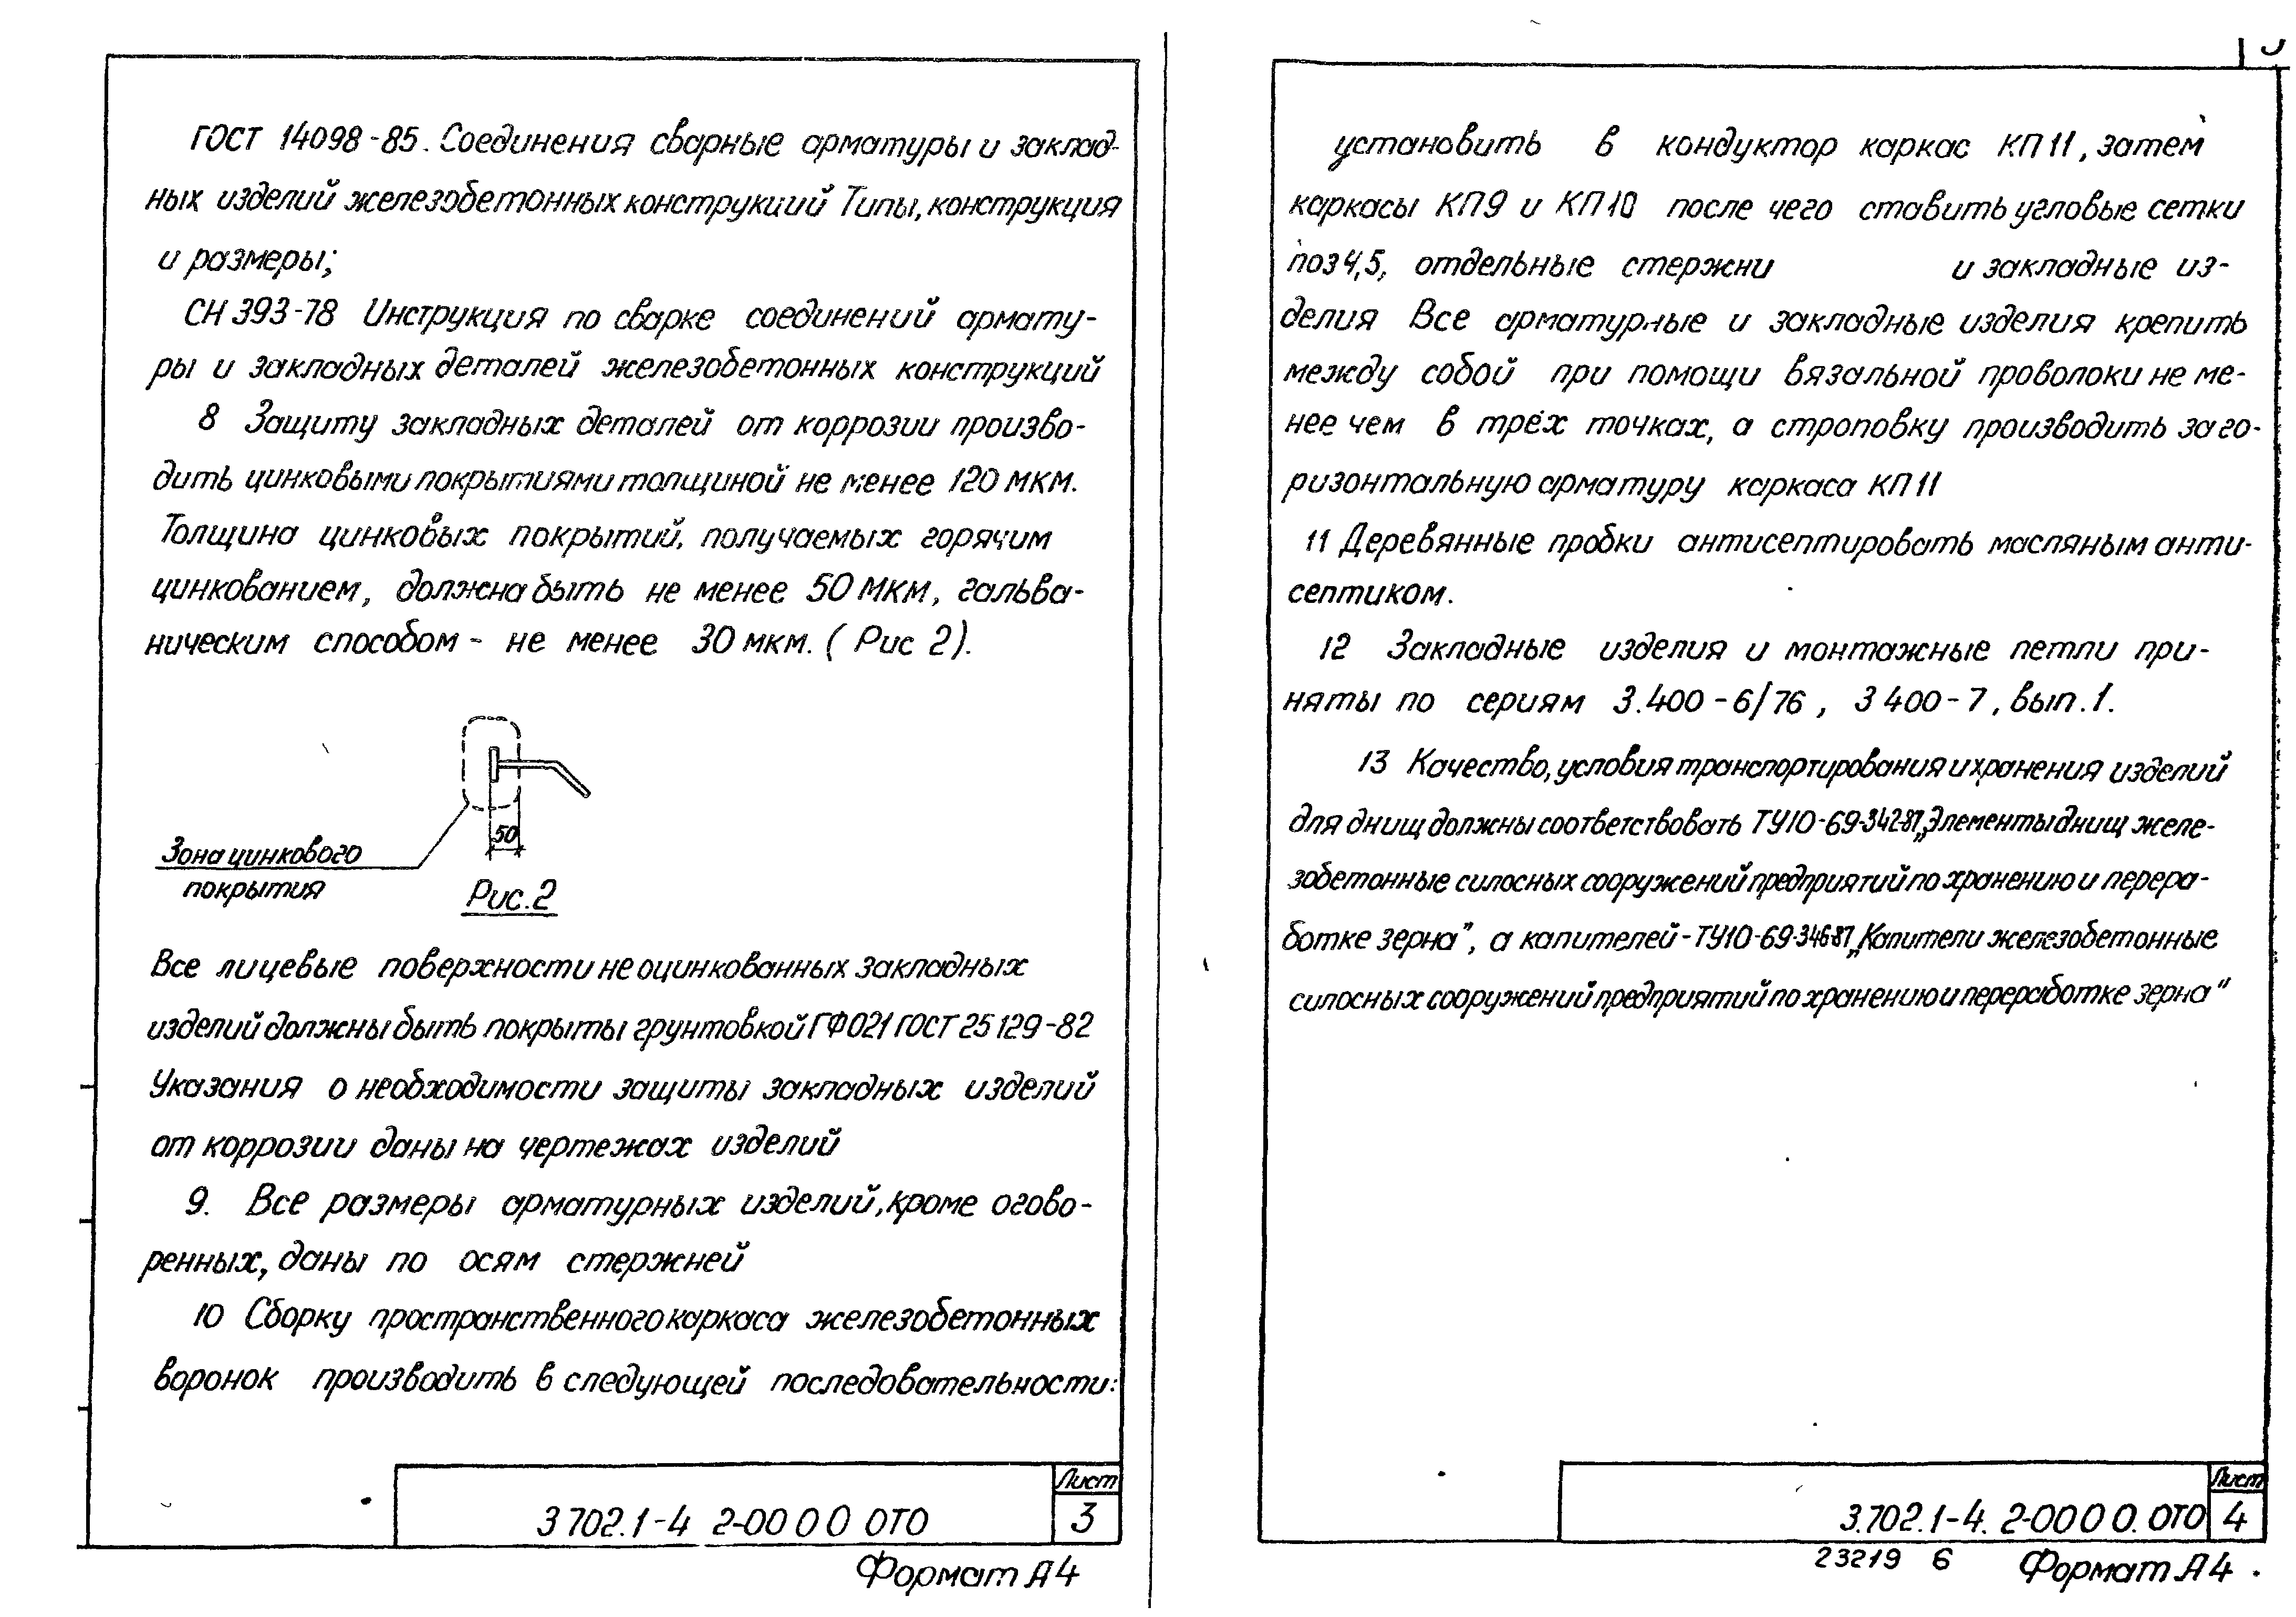 ГОСТ 14098-85. Соединения сварные арматуры и заклад-
ных изделий железобетонных конструкций Типы, конструкция
и размеры;
СН 393-78 Инструкция по сварке соединений армату-
ры и закладных деталей железобетонных конструкций
8 Защиту закладных деталей от коррозии произво-
дить цинковыми покрытиями толщиной не менее 120 мкм.
Толщина цинковых покрытий, получаемых горячим
цинкованием, должна быть не менее 50 мкм, гальва-
ническим способом - не менее 30 мкм. (Рис 2).
50
Зона цинкового
покрытия
Рис.2
Все лицевые поверхности не оцинкованных закладных
изделий должны быть покрыты грунтовкой ГФ 021 ГОСТ 25129-82
Указания о необходимости защиты закладных изделий
от коррозии даны на чертежах изделий
9. Все размеры арматурных изделий, кроме огово-
ренных, даны по осям стержней
10 Сборку пространственного каркаса железобетонных
воронок производить в следующей последовательности:
3 702.1-4 2-00 0 0 ОТО
Лист
3
Формат А4
установить в кондуктор каркас КП 11, затем
каркасы КП9 и КП10 после чего ставить угловые сетки
поз 4,5, отдельные стержни и закладные из-
делия Все арматурные и закладные изделия крепить
между собой при помощи вязальной проволоки не ме-
нее чем в трёх точках, а строповку производить за го-
ризонтальную арматуру каркаса КП 11
11 Деревянные пробки антисептировать масляным анти-
септиком.
12 Закладные изделия и монтажные петли при-
няты по сериям 3.400-6/76, 3 400-7, вып.1.
13 Качество, условия транспортирования и хранения изделий
для днищ должны соответствовать ТУ10-69-342-87 „Элементы днищ желе-
зобетонные силосных сооружений предприятий по хранению и перера-
ботке зерна", а капителей - ТУ10-69-346-87 „Капители железобетонные
силосных сооружений предприятий по хранению и переработке зерна"
3.702.1-4. 2-00 0 0. ОТО
Лист
4
23219 6
Формат А4